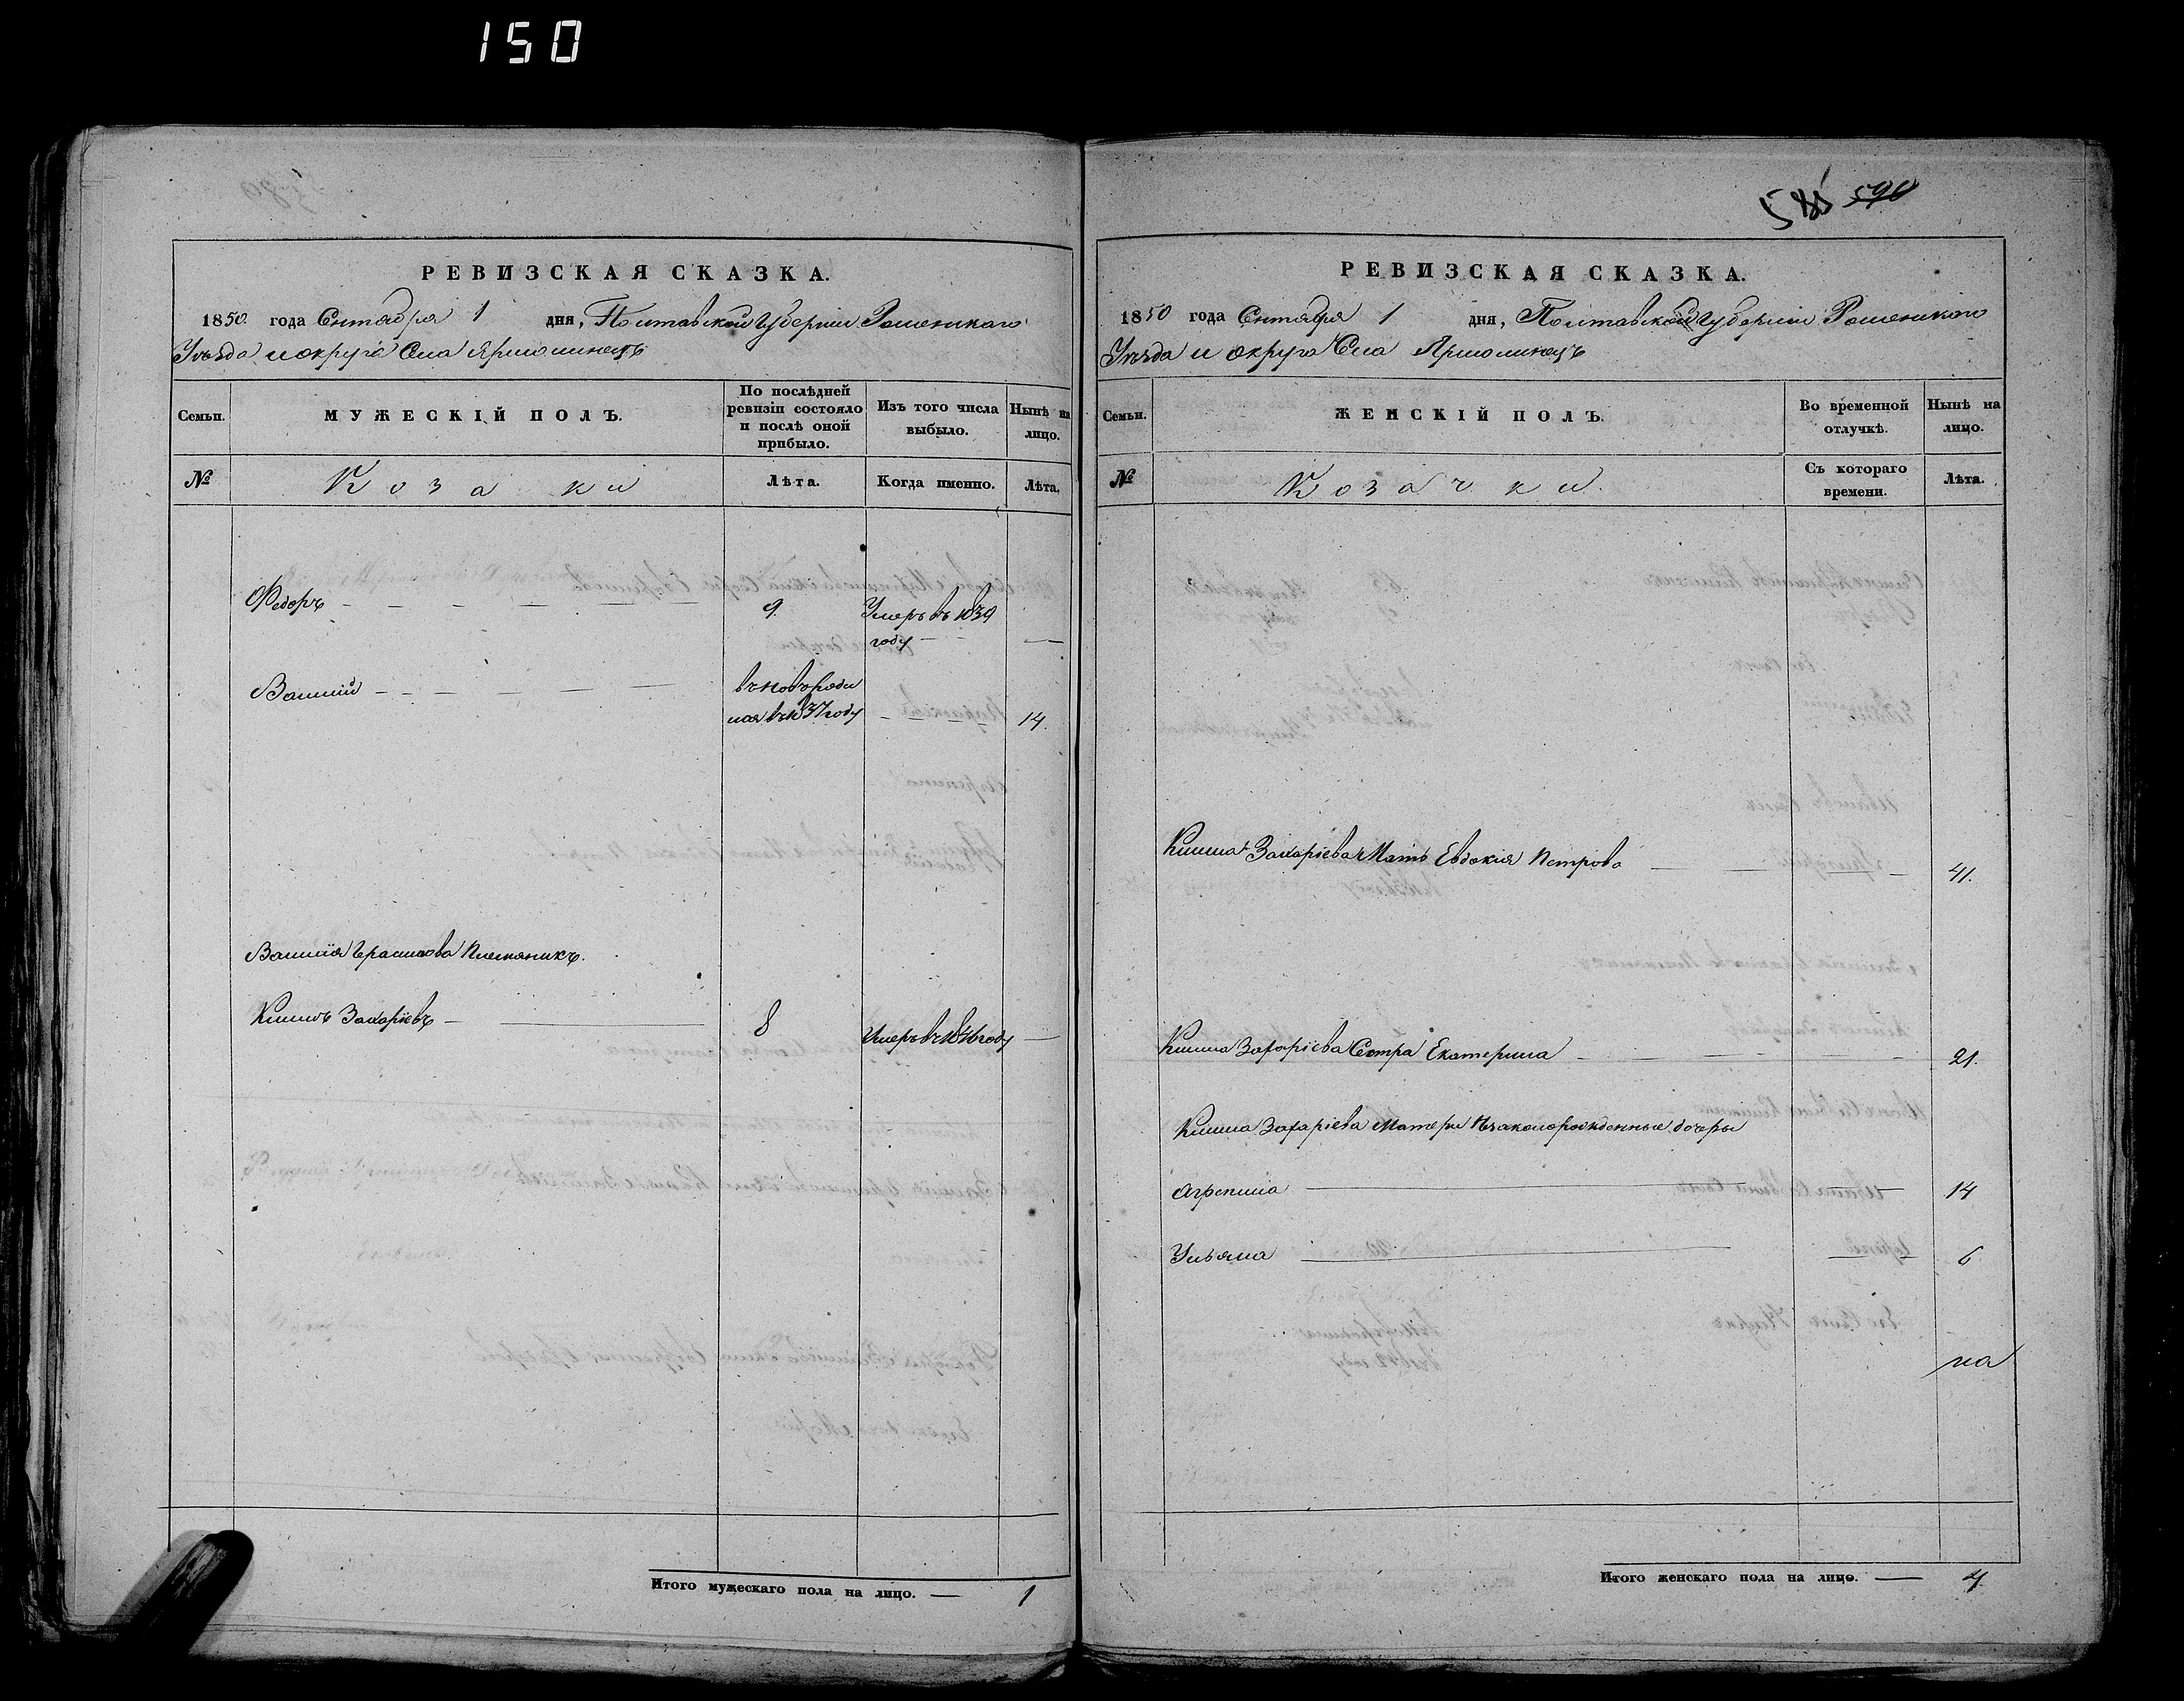 150
РЕВИЗСКАЯ СКАЗКА.
1850 года Сентября 1 дня, Полтавской Губернии Роменскаго
Уезда и округа Села Ярмолинецъ
Семьи. МУЖЕСКІЙ ПОЛЪ. По послѣдней ревизіи состояло и послѣ оной прибыло. Изъ того числа выбыло. Нынѣ на лицо.
№ Козаки Лѣта. Когда именно. Лѣта.
Федоръ 9. Умеръ въ 1839
году
Василий въновь роди
лся в 1837 году 14.
Василия Герасимова Племяникъ.
Климъ Захаріевъ 8 Умеръ в 1846 году
Итого мужескаго пола на лицо. 1
585 590
РЕВИЗСКАЯ СКАЗКА.
1850 года Сентября 1 дня, Полтавской Губернии Роменскаго
Уезда и округа Села Ярмолинецъ
Семьи. ЖЕНСКІЙ ПОЛЪ. Во временной отлучкѣ. Нынѣ на лицо.
№ Козачки. Съ котораго времени. Лѣта.
Клима Захаріева Мать Евдокія Петрова 41.
Клима Захаріева Сестра Екатерина 21.
Клима Захаріева Матери дочеры
Агрепина 14
Ульяна 6
на
Итого женскаго пола на лицо. 4.